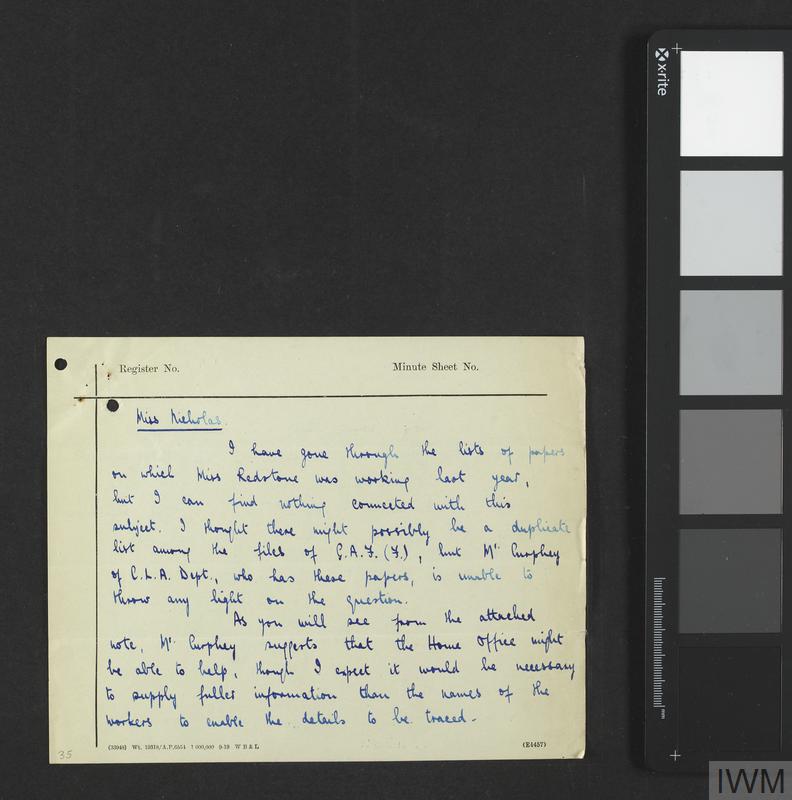 Register No. Minute Sheet No.
Miss Nicholas.
I have gone through the lists of papers
on which Miss Redstone was working last year,
but I can find nothing connected with this
subject. I thought there might possibly be a duplicate
list among the files of G.A.F.(F.), but Mr Curphey
of C.L.A. Dept., who has these papers, is unable to
throw any light on the question.
As you will see from the attached
note, Mr Curphey suggests that the Home Office might
be able to help, though I expect it would be necessary
to supply fuller information than the names of the
workers to enable the details to be traced.
(33948) Wt. 19318/A.P.6554 1 000,000 9-19 W B & L (E4457)
35
x-rite
mm
IWM